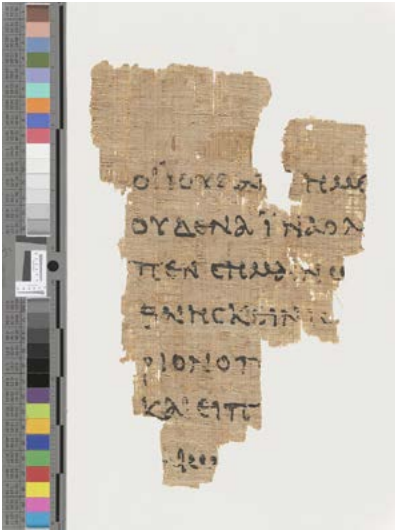 ΟΙΙΟΥΔΑΙ ΗΜΕ
ΟΥΔΕΝΑΪΝΑΟΛ
ΠΕΝϹΗΜΑΙΝΩ
ΘΝΗϹΚΕΙΝ
ΡΙΟΝΟΠ
ΚΑΙΕΙΠ